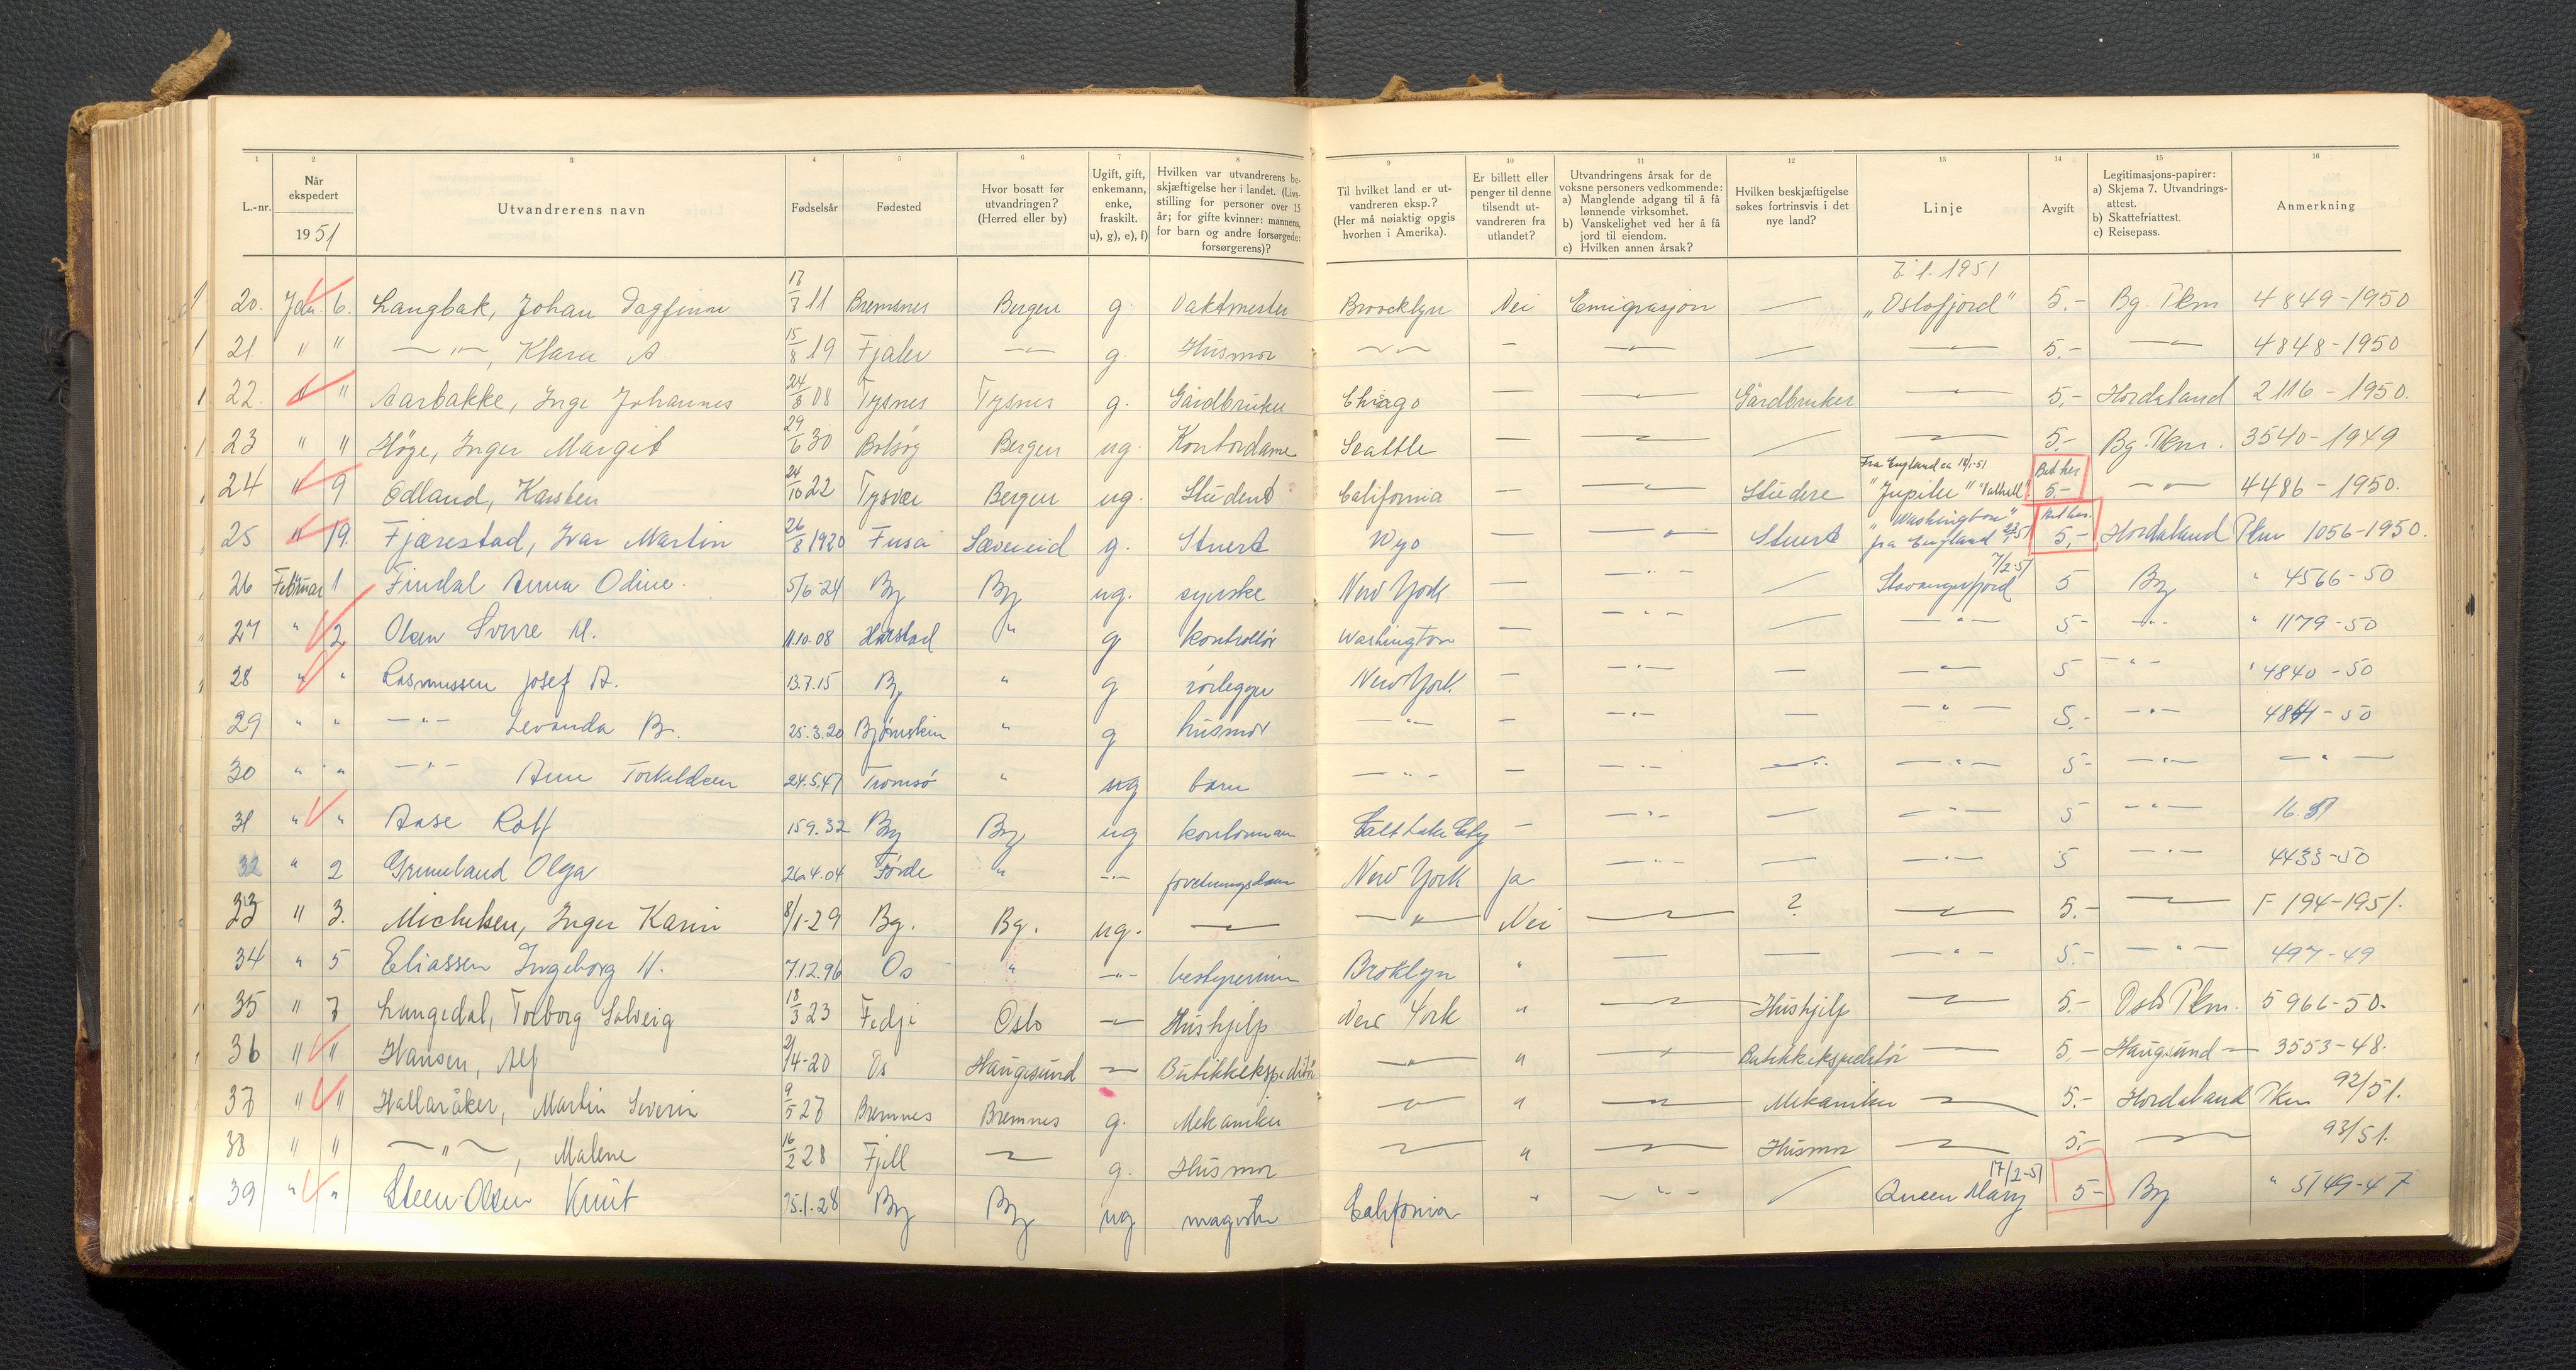 1 2 3 4 5 6 7 8 9 10 11 12 13 14 15 16
L.-nr. Når ekspedert 1951 Utvandrerens navn Fødselsår Fødested Hvor bosatt før utvandringen? (Herred eller by) Ugift, gift, enkemann, enke, fraskilt. u), g), e), f) Hvilken var utvandrerens beskjæftigelse her i landet. (Livsstilling for personer over 15 år; for gifte kvinner: mannens, for barn og andre forsørgede: forsørgerens)? Til hvilket land er utvandreren eksp.? (Her må nøiaktig opgis hvorhen i Amerika). Er billett eller penger til denne tilsendt utvandreren fra utlandet? Utvandringens årsak for de voksne personers vedkommende: a) Manglende adgang til å få lønnende virksomhet. b) Vanskelighet ved her å få jord til eiendom. c) Hvilken annen årsak? Hvilken beskjæftigelse søkes fortrinsvis i det nye land? Linje Avgift Legitimasjons-papirer: a) Skjema 7. Utvandrings-attest. b) Skattefriattest. c) Reisepass. Anmerkning
7.1.1951
20. Jan. 6. Langbak, Johan Dagfinn 17/7 11 Bremsnes Bergen g. Vaktmester Broocklyn Nei Emigrasjon — "Oslofjord" 5.- Bg. Pkm 4849-1950
21. " " —"—, Klara A. 15/8 19 Fjaler —"— g. Husmor —"— — —"— — —"— 5.- —"— 4848-1950
22. " " Aarbakke, Inge Johannes 24/8 08 Tysnes Tysnes g. Gårdbruker Chiago — —"— Gårdbruker —"— 5,- Hordaland 2116-1950.
23 " " Høge, Inger Margit 29/6 30 Bolsøy Bergen ug. Kontordame Seattle — —"— — —"— 5.- Bg. Pkm. 3540-1949
24 " 9 Ødland, Karsten 24/10 22 Tysvær Bergen ug. Student California — —"— Studere Fra England ca 18/1-51 "Jupiter" "Valhall" Bet her 5.- —"— 4486-1950.
25 " 19. Fjærestad, Ivar Martin 26/8 1920 Fusa Sævereid g. Stuert Wyo — —"— Stuert "Washington" fra England Bet her. 5,- Hordaland Pkm 1056-1950.
26 Februar 1 Findal Anna Odine. 5/6-24 Bg Bg ug. syerske New York — —"— — Stavangerfjord 7/2-51 5 Bg " 4566-50
27 " 2 Olsen Sverre M. 11.10.08 Harstad " g kontrollør Washington — —"— — —"— 5- —"— " 1179-50
28 " " Rasmussen Josef A. 13.7.15 Bg " g rørlegger New York — —"— — —"— 5 —"— " 4840-50
29 " " —"— Levanda B. 25.3.20 Bjørnskin " g husmor —"— — —"— — —"— 5.- —"— 4841-50
30 " " —"— Anne Torkeldsen 24.5.47 Tromsø " ug barn —"— — —"— —"— —"— 5- —"— —"—
31 " " Aase Rolf 15.9.32 Bg Bg ug kontormann Salt Lake City — —"— — —"— 5 —"— 16.51
32 " 2 Grimeland Olga 26.4.04 Førde " —"— forretningsdame New York ja —"— — —"— 5 —"— 4433-50
33 " 3. Michelsen, Inger Karin 8/1-29 Bg. Bg. ug. —"— —"— Nei —"— ? —"— 5.- —"— F 194-1951.
34 " 5 Eliassen Ingeborg N. 7.12.96 Os " —"— bestyrerinne Broklyn " — — —"— 5.- —"— 497-49
35 " 7 Langedal, Torborg Solveig 18/3 23 Fedje Oslo —"— Hushjelp New York " —"— Hushjelp —"— 5.- Oslo Pkm. 5966-50.
36 " " Hansen, Alf 21/4-20 Os Haugesund —"— Butikkekspeditør —"— " —"— Butikkekspeditør —"— 5,- Haugesund —"— 3553-48.
37 " " Hallaråker, Martin Severin 9/5 27 Bremnes Bremnes g. Mekaniker —"— " —"— Mekaniker —"— 5.- Hordaland Pkm 92/51.
38 " " —"—, Malene 16/2 28 Fjell —"— g. Husmor —"— " —"— Husmor —"— 5,- —"— 93/51.
39 " " Steen-Olsen Knut 15.1.28 Bg Bg ug magister California " —"— — Queen Mary 17/2-51 5- Bg " 5149-47